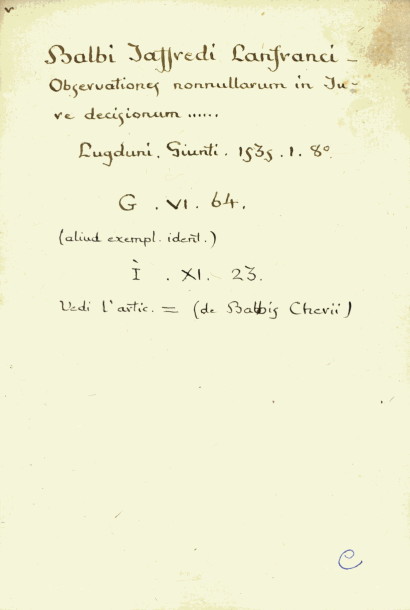 Balbi Jaffredi Lanfranci -
Observationes nonnullarum in Ju-
re decisionum ......
Lugduni. Giunti. 1535. 1. 8°
G. VI. 64.
(aliud exempl. ident.)
Ì. XI. 23.
Vedi l'artic. = (de Balbis Cherii)
C